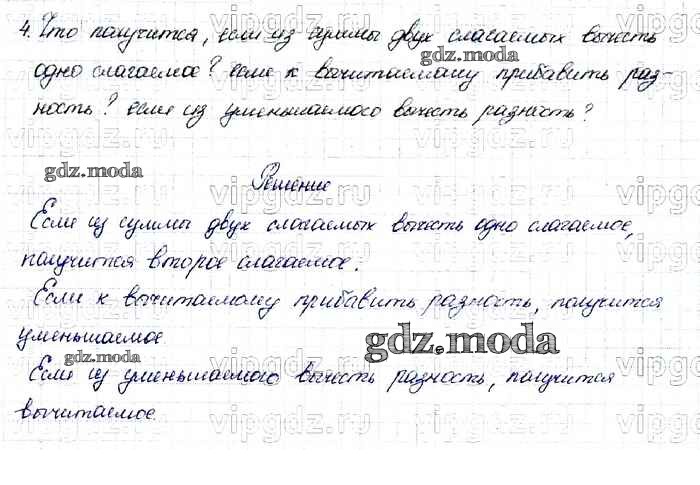 4. Что получится, если из суммы двух слагаемых вычесть
одно слагаемое? если к вычитаемому прибавить раз-
ность? если из уменьшаемого вычесть разность?
gdz.moda
Решение
Если из суммы двух слагаемых вычесть одно слагаемое,
получится второе слагаемое.
Если к вычитаемому прибавить разность, получится
уменьшаемое
Если из уменьшаемого вычесть разность, получится
вычитаемое.
gdz.moda
gdz.moda
gdz.moda
gdz.moda
gdz.moda
vipgdz.ru